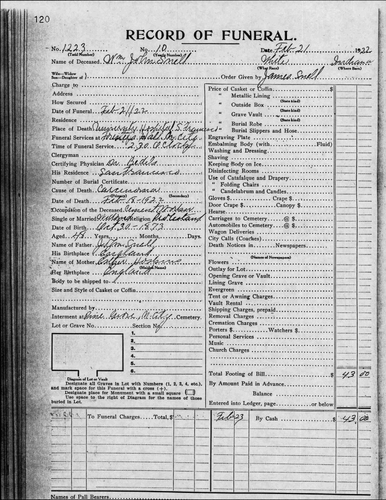 120
RECORD OF FUNERAL.
No. 1223 No. 10 Date Feb. 21 1922
(Total Number) (Yearly Number)
Name of Deceased Wm John Snell White
(What Race) (Where Born)
Wife—Widow
Son—Daughter of Order Given by James Snell
Charge to
Address
How Secured
Date of Funeral Feb 21/22
Residence
Place of Death University Hospital S. Francisco
Funeral Services at
Time of Funeral Service 2:30 O'Clock
Clergyman
Certifying Physician Dr.
His Residence San Francisco
Number of Burial Certificate
Cause of Death Carcinoma
Date of Death Feb 18-1922
Occupation of the Deceased
Single or Married Religion Protestant
Date of Birth Oct 30-1873
Aged 48 Years Months Days
Name of Father John Snell
His Birthplace England
Name of Mother
(Maiden Name)
Her Birthplace England
Body to be shipped to
Size and Style of Casket or Coffin
Manufactured by
Interment at Pine Grove Cemetery
Lot or Grave No. Section No.
1
2
3
4
5
6
Diagram of Lot or Vault
Designate all Graves in Lot with Numbers (1, 2, 3, 4, etc.),
and mark space for this Funeral with a cross (+).
Designate place for Monument with a small square
Use space to the right of Diagram for the names of those
buried in Lot.
Price of Casket or Coffin $
" Metallic Lining
(State kind)
" Outside Box
(State kind)
" Grave Vault
(State kind)
" Burial Robe
(State kind)
" Burial Slippers and Hose
Engraving Plate
Embalming Body (with Fluid)
Washing and Dressing
Shaving
Keeping Body on Ice
Disinfecting Rooms
Use of Catafalque and Drapery
" Folding Chairs
" Candelabrum and Candles
Gloves $ Crape $
Door Crape $ Canopy $
Hearse
Carriages to Cemetery @ $
Automobiles to Cemetery @ $
Wagon Deliveries
City Calls (Coaches)
Death Notices in Newspapers
(Names of Newspapers)
Flowers
Outlay for Lot
Opening Grave or Vault
Lining Grave
Evergreen
Tent or Awning Charges
Vault Rental
Shipping Charges, prepaid
Removal Charges
Cremation Charges
Porters $ Watchers $
Personal Services
Music
Church Charges
Total Footing of Bill $ 43 00
By Amount Paid in Advance
Balance
Entered into Ledger, page or below.
To Funeral Charges Total $ Feb 23 By Cash $ 43 00
Names of Pall Bearers